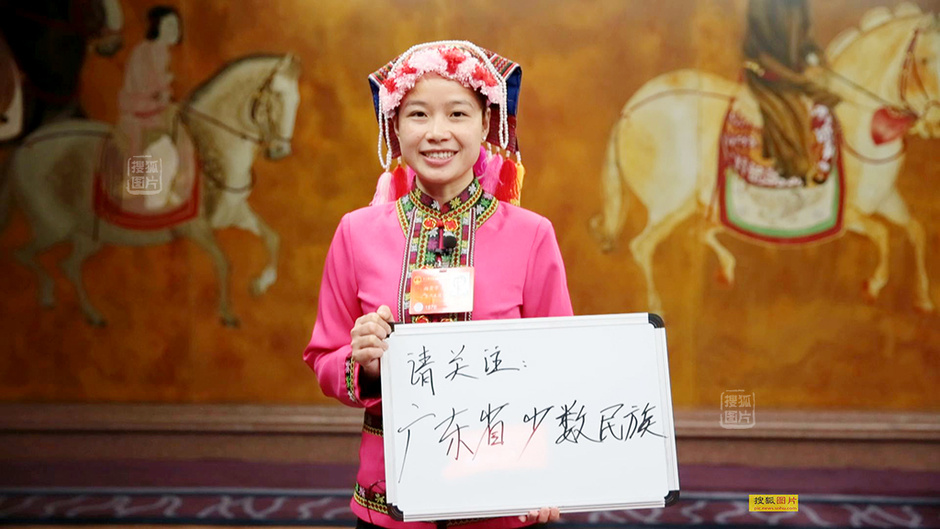 请关注：
广东省少数民族
搜狐
图片
搜狐
图片
搜狐图片